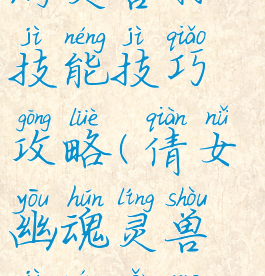 jì néng jì qiǎo
技能技巧
gōng lüè qiàn nǚ
攻略(倩女
yōu hún líng shòu
幽魂灵兽